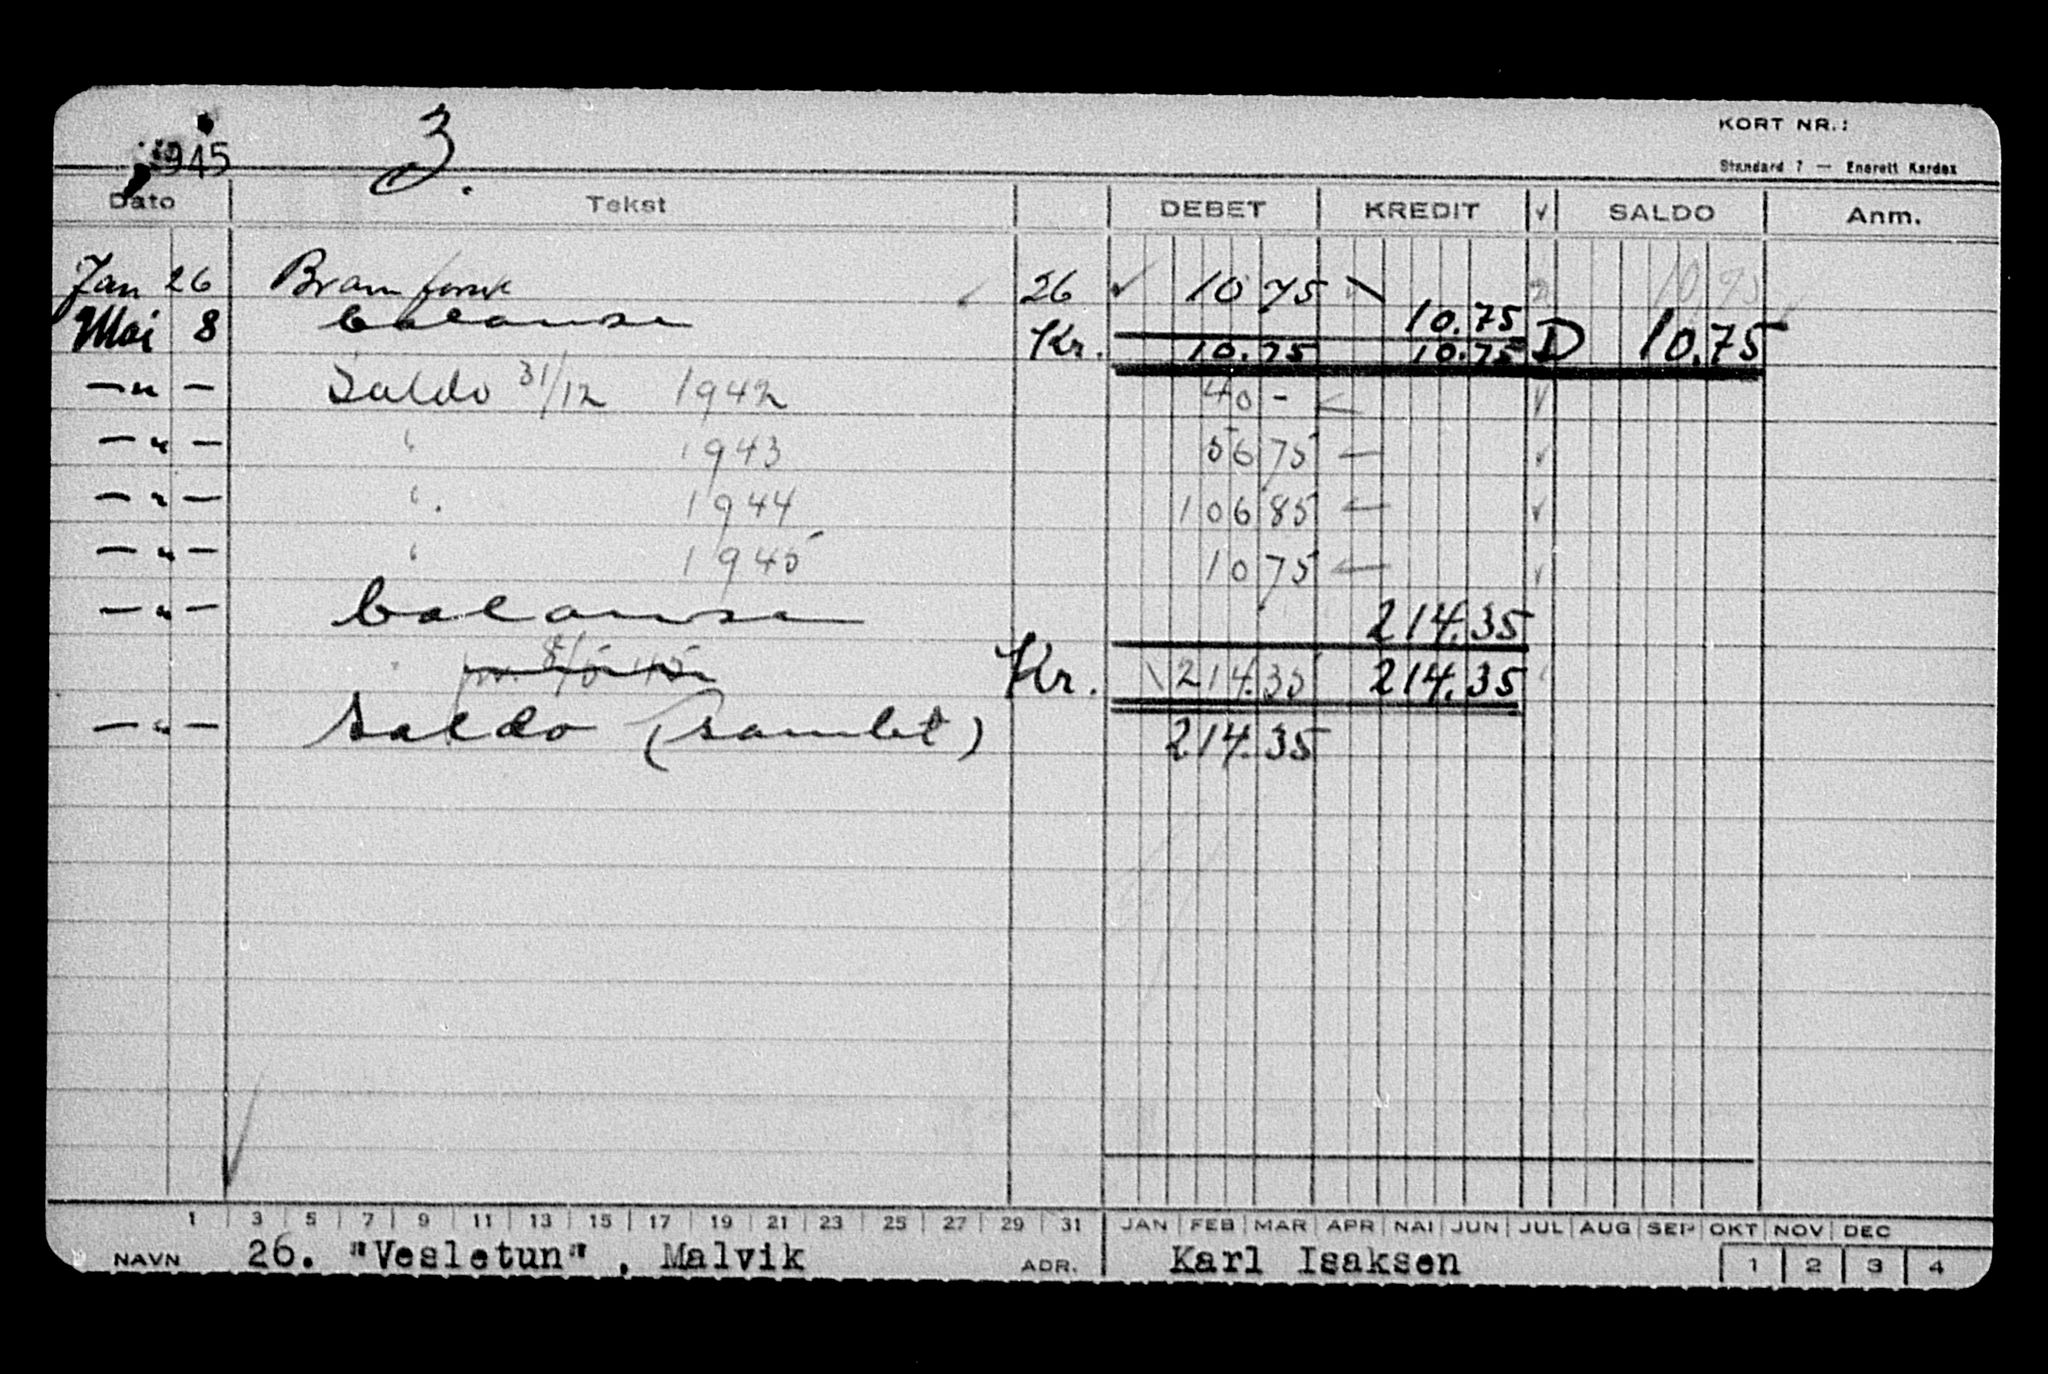 1945 3.
KORT NR.:
Standard 7 — Enerett Kardex
Dato Tekst DEBET KREDIT √ SALDO Anm.
Jan 26 Brannforsk 26 √ 10 75 10.75
Mai 8 balanse 10.75
Kr. 10.75 10.75 D 10.75
—"— Saldo 31/12 1942 40 - √
—"— " 1943 56 75 — √
—"— " 1944 106 85 — √
—"— " 1945 10 75 — √
—"— balanse 214.35
pr. 8/5 45 Kr. 214.35 214.35
—"— Saldo (samlet) 214.35
1 3 5 7 9 11 13 15 17 19 21 23 25 27 29 31 JAN FEB MAR APR MAI JUN JUL AUG SEP OKT NOV DEC
NAVN 26. "Vesletun", Malvik ADR. Karl Isaksen 1 2 3 4